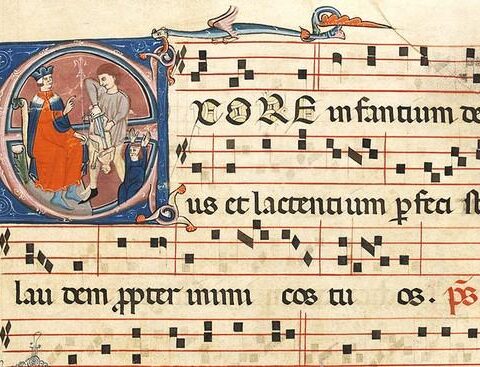 EX ORE in fantium de
us et lactentium ꝑfeci st
lau dem ꝓpter inimi cos tu os. p̄s